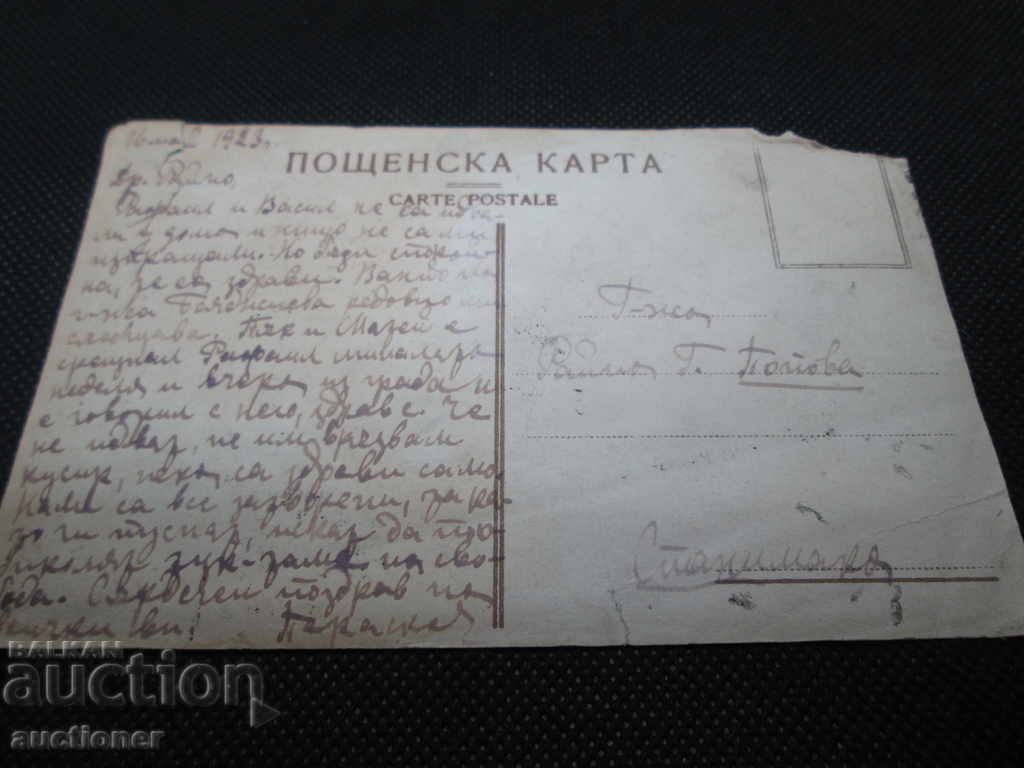 16 май 1923 г.
ПОЩЕНСКА КАРТА
CARTE POSTALE
Др. Райно,
Рафаил и Васил не са
ли у дома и нищо не са
изпращали. Но бъди спокой-
на, че са здрави. Ванто
г-жа редовно
Пък и е
срещнал Рафаил миналата
неделя и вчера из града и
е говорил с него, здрав е. Че
не идват, не им връзвам
кусур, нека са здрави само.
Нали са все затворени,
то ги пуснат, искат да про-
на сво-
бода. Сърдечен поздрав на
всички ви! Параскев
Г-жа
Райна Г. Попова
Станимака
BALKAN
auction
auctioner